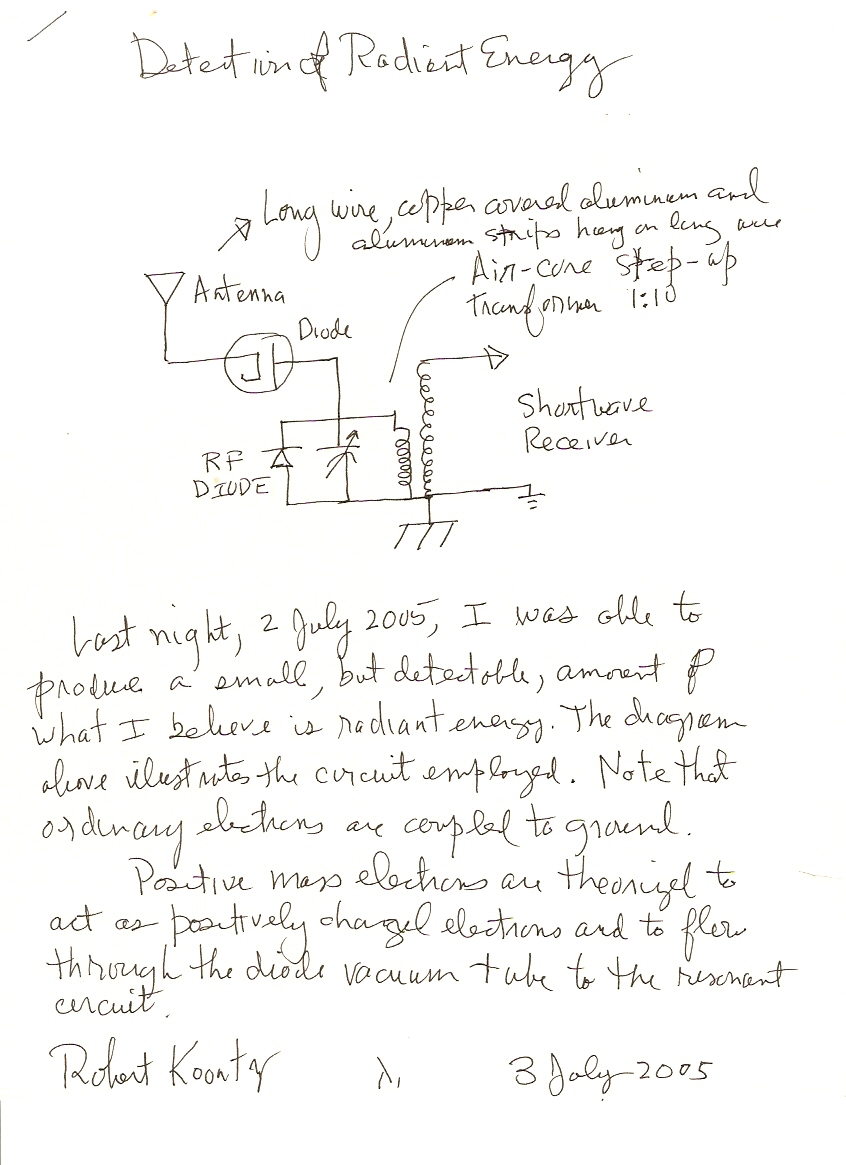 Detection of Radiant Energy
Long wire, copper covered aluminum and
aluminum strips hang on long wire
Air-core step-up
transformer 1:10
Antenna
Diode
Shortwave
Receiver
RF
DIODE
Last night, 2 July 2005, I was able to
produce a small, but detectable, amount of
what I believe is radiant energy. The diagram
above illustrates the circuit employed. Note that
ordinary electrons are coupled to ground.
Positive mass electrons are theorized to
act as positively charged electrons and to flow
through the diode vacuum tube to the resonant
circuit.
Robert Koontz λ, 3 July 2005